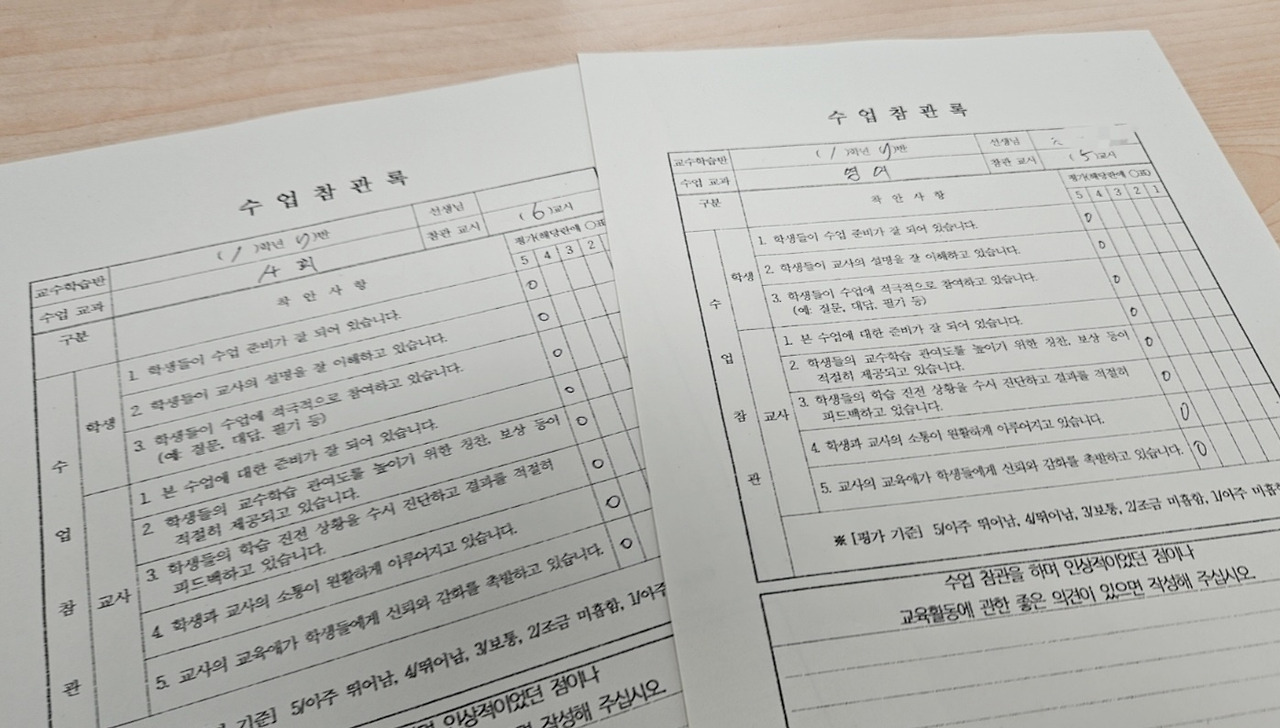 수 업 참 관 록
교수학습반
( 1 )학년 ( )반
선생님
수업 교과
사 회
참관 교시
( 6 )교시
구분
착 안 사 항
평가(해당란에 ○표
5 4 3 2
수 업 참 관
학생
1. 학생들이 수업 준비가 잘 되어 있습니다.
2. 학생들이 교사의 설명을 잘 이해하고 있습니다.
3. 학생들이 수업에 적극적으로 참여하고 있습니다.
(예: 질문, 대답, 필기 등)
교사
1. 본 수업에 대한 준비가 잘 되어 있습니다.
2. 학생들의 교수학습 관여도를 높이기 위한 칭찬, 보상 등이
적절히 제공되고 있습니다.
3. 학생들의 학습 진전 상황을 수시 진단하고 결과를 적절히
피드백하고 있습니다.
4. 학생과 교사의 소통이 원활하게 이루어지고 있습니다.
5. 교사의 교육애가 학생들에게 신뢰와 감화를 촉발하고 있습니다.
기준] 5/아주 뛰어남, 4/뛰어남, 3/보통, 2/조금 미흡함, 1/아주
인상적이었던 점이나
작성해 주십시오
수 업 참 관 록
교수학습반
( 1 )학년 ( )반
선생님
수업 교과
영 어
참관 교시
( 5 )교시
구분
착 안 사 항
평가(해당란에 ○표)
5 4 3 2 1
수 업 참 관
학생
1. 학생들이 수업 준비가 잘 되어 있습니다.
2. 학생들이 교사의 설명을 잘 이해하고 있습니다.
3. 학생들이 수업에 적극적으로 참여하고 있습니다.
(예: 질문, 대답, 필기 등)
교사
1. 본 수업에 대한 준비가 잘 되어 있습니다.
2. 학생들의 교수학습 관여도를 높이기 위한 칭찬, 보상 등이
적절히 제공되고 있습니다.
3. 학생들의 학습 진전 상황을 수시 진단하고 결과를 적절히
피드백하고 있습니다.
4. 학생과 교사의 소통이 원활하게 이루어지고 있습니다.
5. 교사의 교육애가 학생들에게 신뢰와 감화를 촉발하고 있습니다.
※ [평가 기준] 5/아주 뛰어남, 4/뛰어남, 3/보통, 2/조금 미흡함, 1/아주 미흡
수업 참관을 하며 인상적이었던 점이나
교육활동에 관한 좋은 의견이 있으면 작성해 주십시오